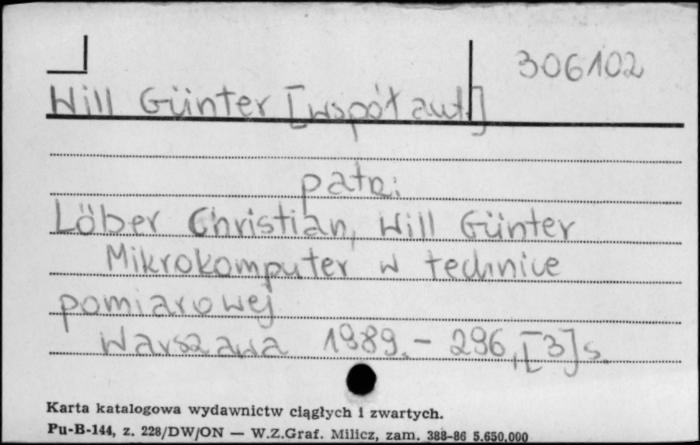 306102
Will Günter [współaut.]
patrz:
Löber Christian, Will Günter
Mikrokomputer w technice
pomiarowej
Warszawa 1989. - 296, [3] s.
Karta katalogowa wydawnictw ciągłych i zwartych.
Pu-B-144, z. 228/DW/ON — W.Z.Graf. Milicz, zam. 388-86 5.650.000